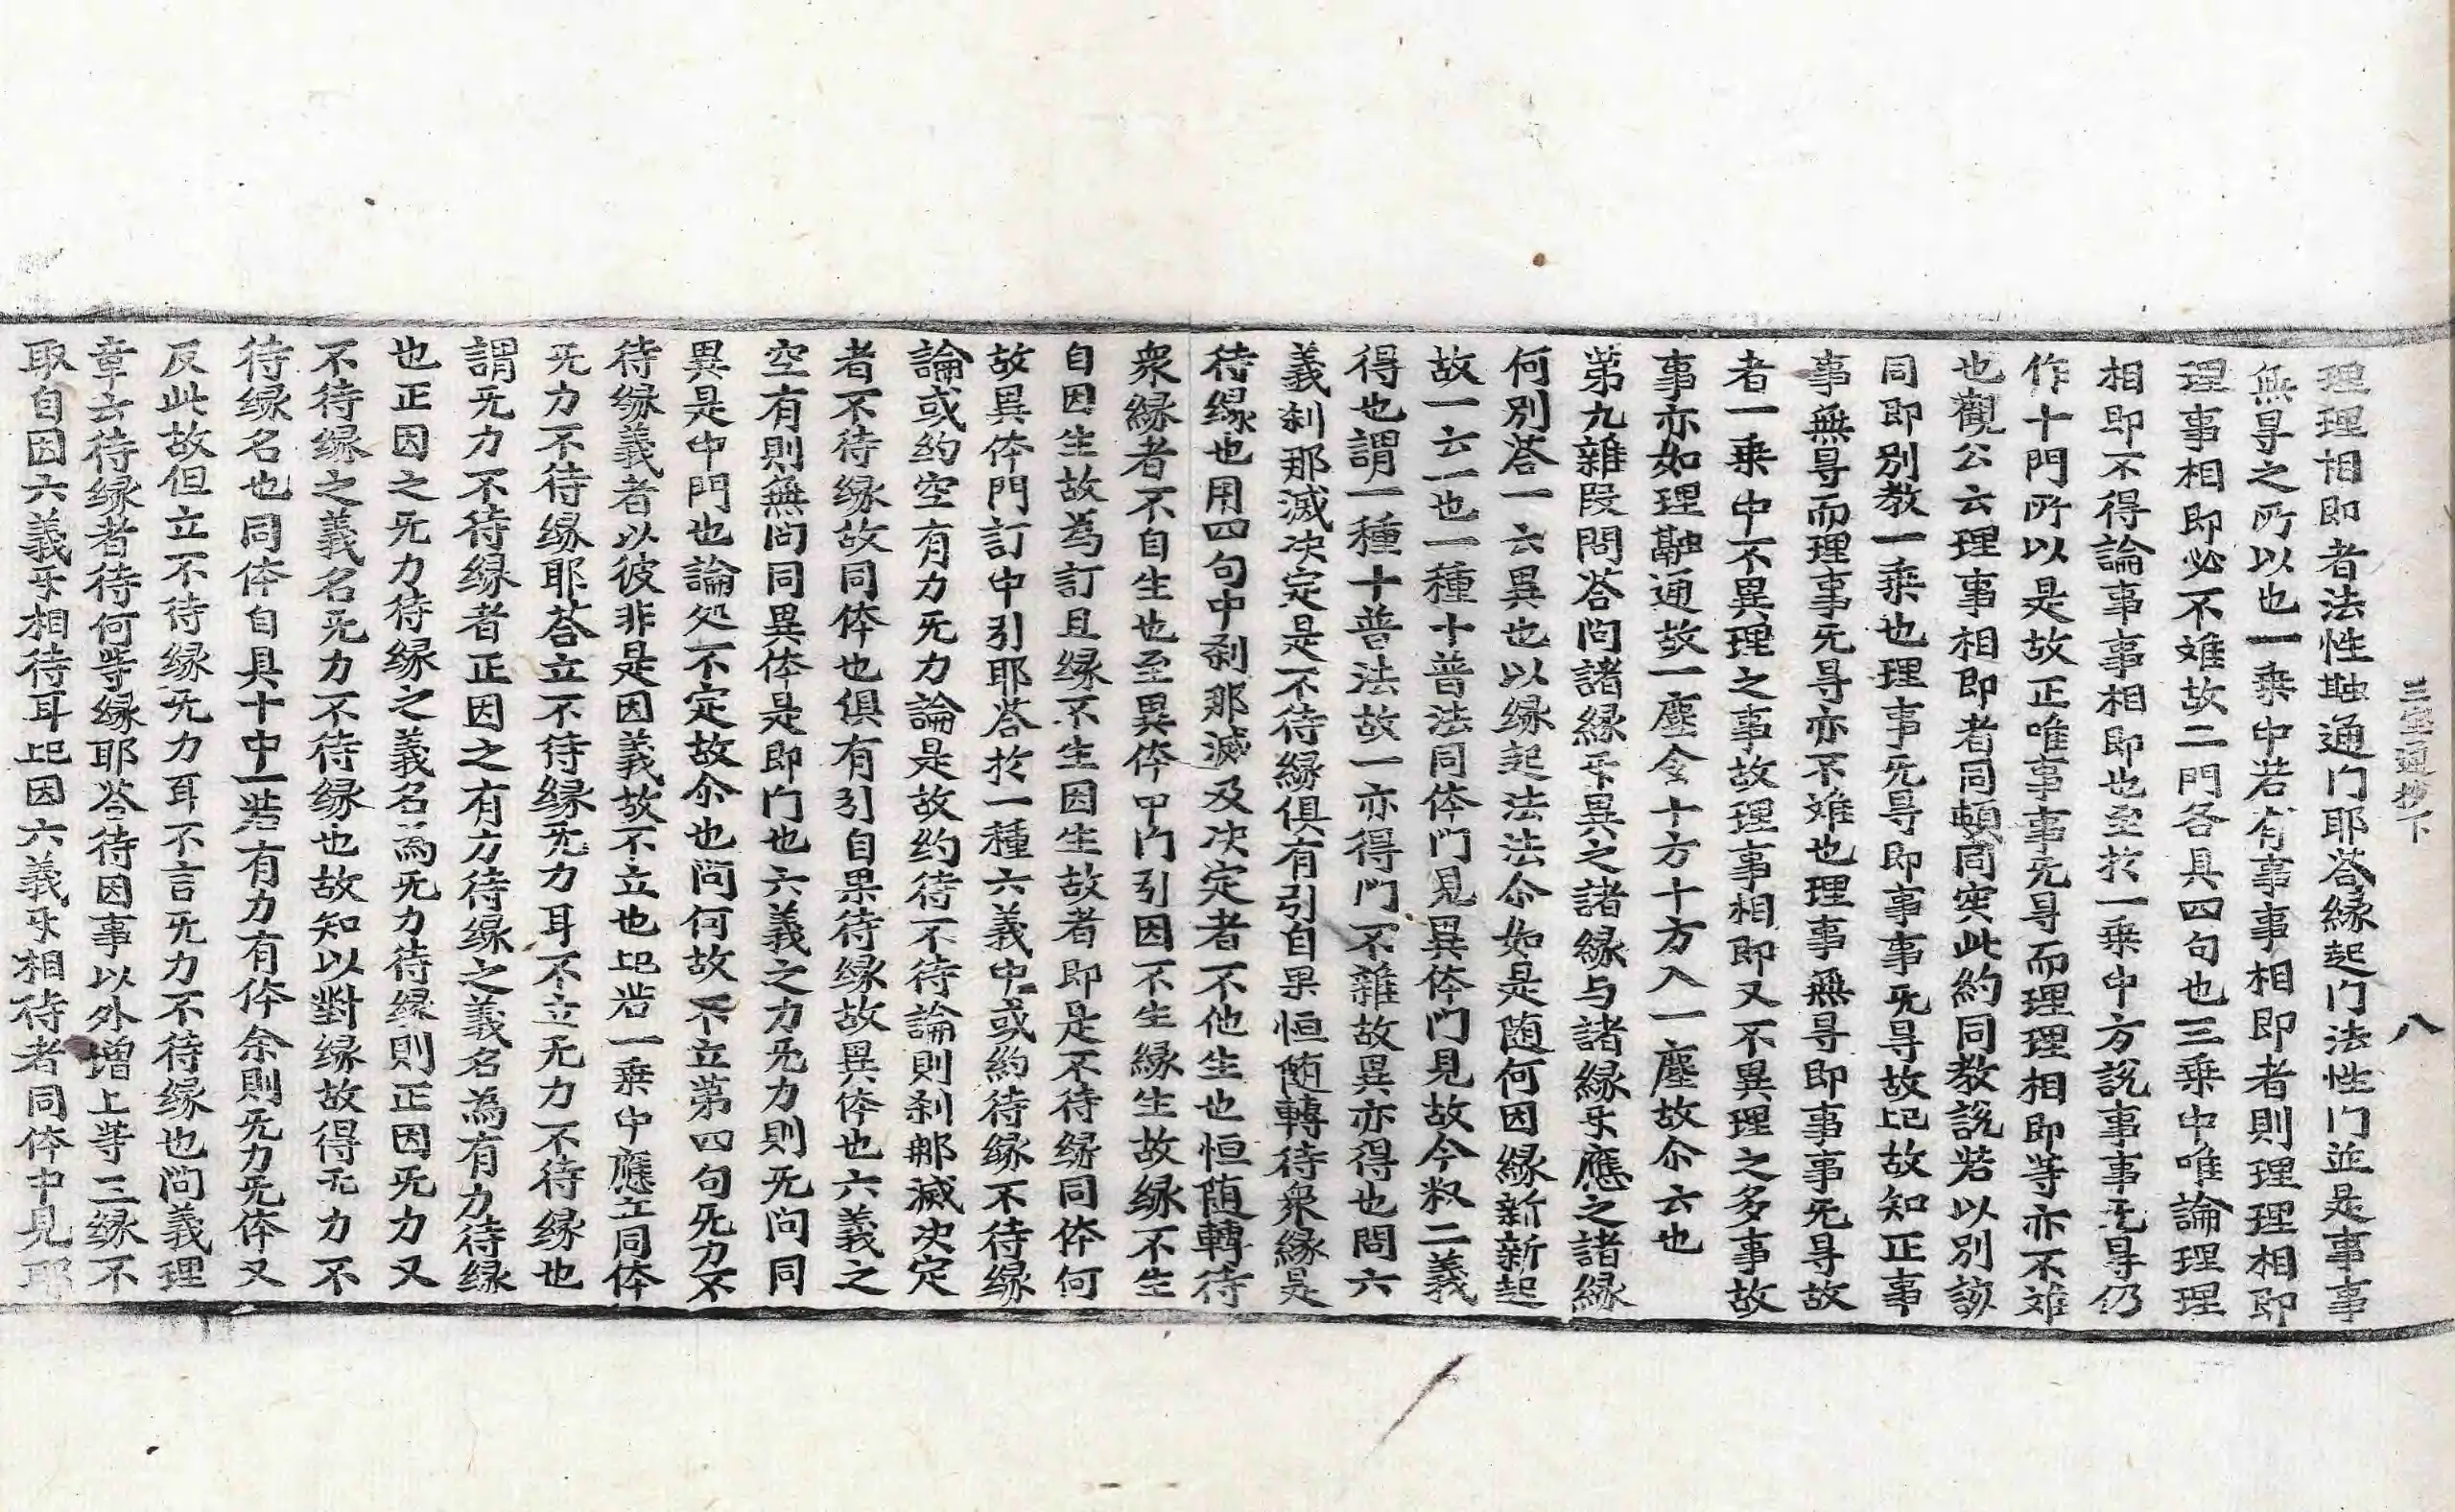 三宝通抄下 八
理理相即者法性融通门耶荅縁起门法性门並是事事
無㝵之所以也一乗中若有事事相即者則理理相即
理事相即必不难故二門各具四句也三乗中唯論理理
相即不得論事事相即也至扵一乗中方說事事旡㝵仍
作十門所以是故正唯事事旡㝵而理理相即等亦不难
也觀公云理事相即者同頓同实此約同教說若以別該
同即別教一乗也理事旡㝵即事事旡㝵故㠯故知正事
事無㝵而理事旡㝵亦不难也理事無㝵即事事旡㝵故
者一乗中不異理之事故理事相即又不異理之多事故
事亦如理融通故一塵含十方十方入一塵故尒云也
第九雜段問荅问諸縁㸦異之諸縁与諸縁㸦應之諸縁
何別荅一云異也以縁起法法尒如是随何因縁新新起
故一云一也一種十普法同体门見異体门見故今叙二義
得也謂一種十普法故一亦得门不雜故異亦得也問六
義刹那滅决定是不待縁俱有引自果恒随轉待衆縁是
待縁也用四句中刹那滅及决定者不他生也恒随轉待
衆縁者不自生也至異体中门引因不生縁生故縁不生
自因生故為訂且縁不生因生故者即是不待縁同体何
故異体門訂中引耶荅扵一種六義中或約待縁不待縁
論或約空有力旡力論是故約待不待論則刹那滅决定
者不待縁故同体也俱有引自果待縁故異体也六義之
空有則無问同異体是即门也六義之力旡力則旡问同
異是中門也論処不定故尒也问何故不立第四句旡力不
待縁義者以彼非是因義故不立也㠯若一乗中應立同体
旡力不待縁耶荅立不待縁旡力耳不立旡力不待縁也
謂旡力不待縁者正因之有力待縁之義名為有力待縁
也正因之旡力待縁之義名為旡力待縁則正因旡力又
不待縁之義名旡力不待縁也故知以對縁故得旡力不
待縁名也同体自具十中一若有力有体余則旡力旡体又
反此故但立不待縁旡力耳不言旡力不待縁也问義理
章云待縁者待何等縁耶荅待因事以外增上等三縁不
取自因六義㸦相待耳㠯因六義㸦相待者同体中見耶